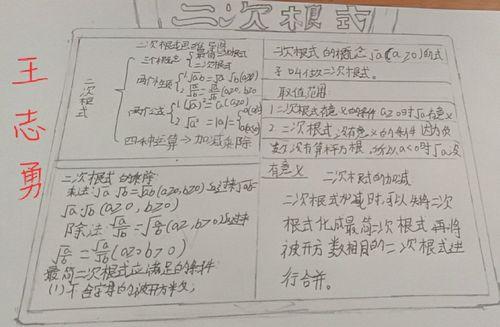 二次根式
王志勇
二次根式
二次根式思维导图
三个概念 最简二次根式
二次根式
两个性质 1 √ab=√a·√b(a≥0
2 √a/b=√a/√b a≥0, b>0
两个公式 1 (√a)²=a(a≥0)
2 √a²=|a|=
四种运算→加减乘除
二次根式的概念 √a (a≥0)的式
子叫做二次根式。
取值范围
1 二次根式有意义的条件 a≥0时√a有意义
2. 二次根式没有意义的条件 因为负
数没有算术平方根，所以a<0时√a没
有意义
二次根式的乘除
乘法:√a √b=√ab (a≥0, b≥0) 反过来√ab=
√a·√b (a≥0, b≥0)
除法:√a/√b=√a/b (a≥0, b>0)反过来
√a/b=√a/√b (a≥0 b>0)
最简二次根式应满足的条件
(1)不含字母的被开方数,
二次根式的加减
二次根式加减时,可以先将二次
根式化成最简二次根式再将
被开方数相同的二次根式进
行合并。